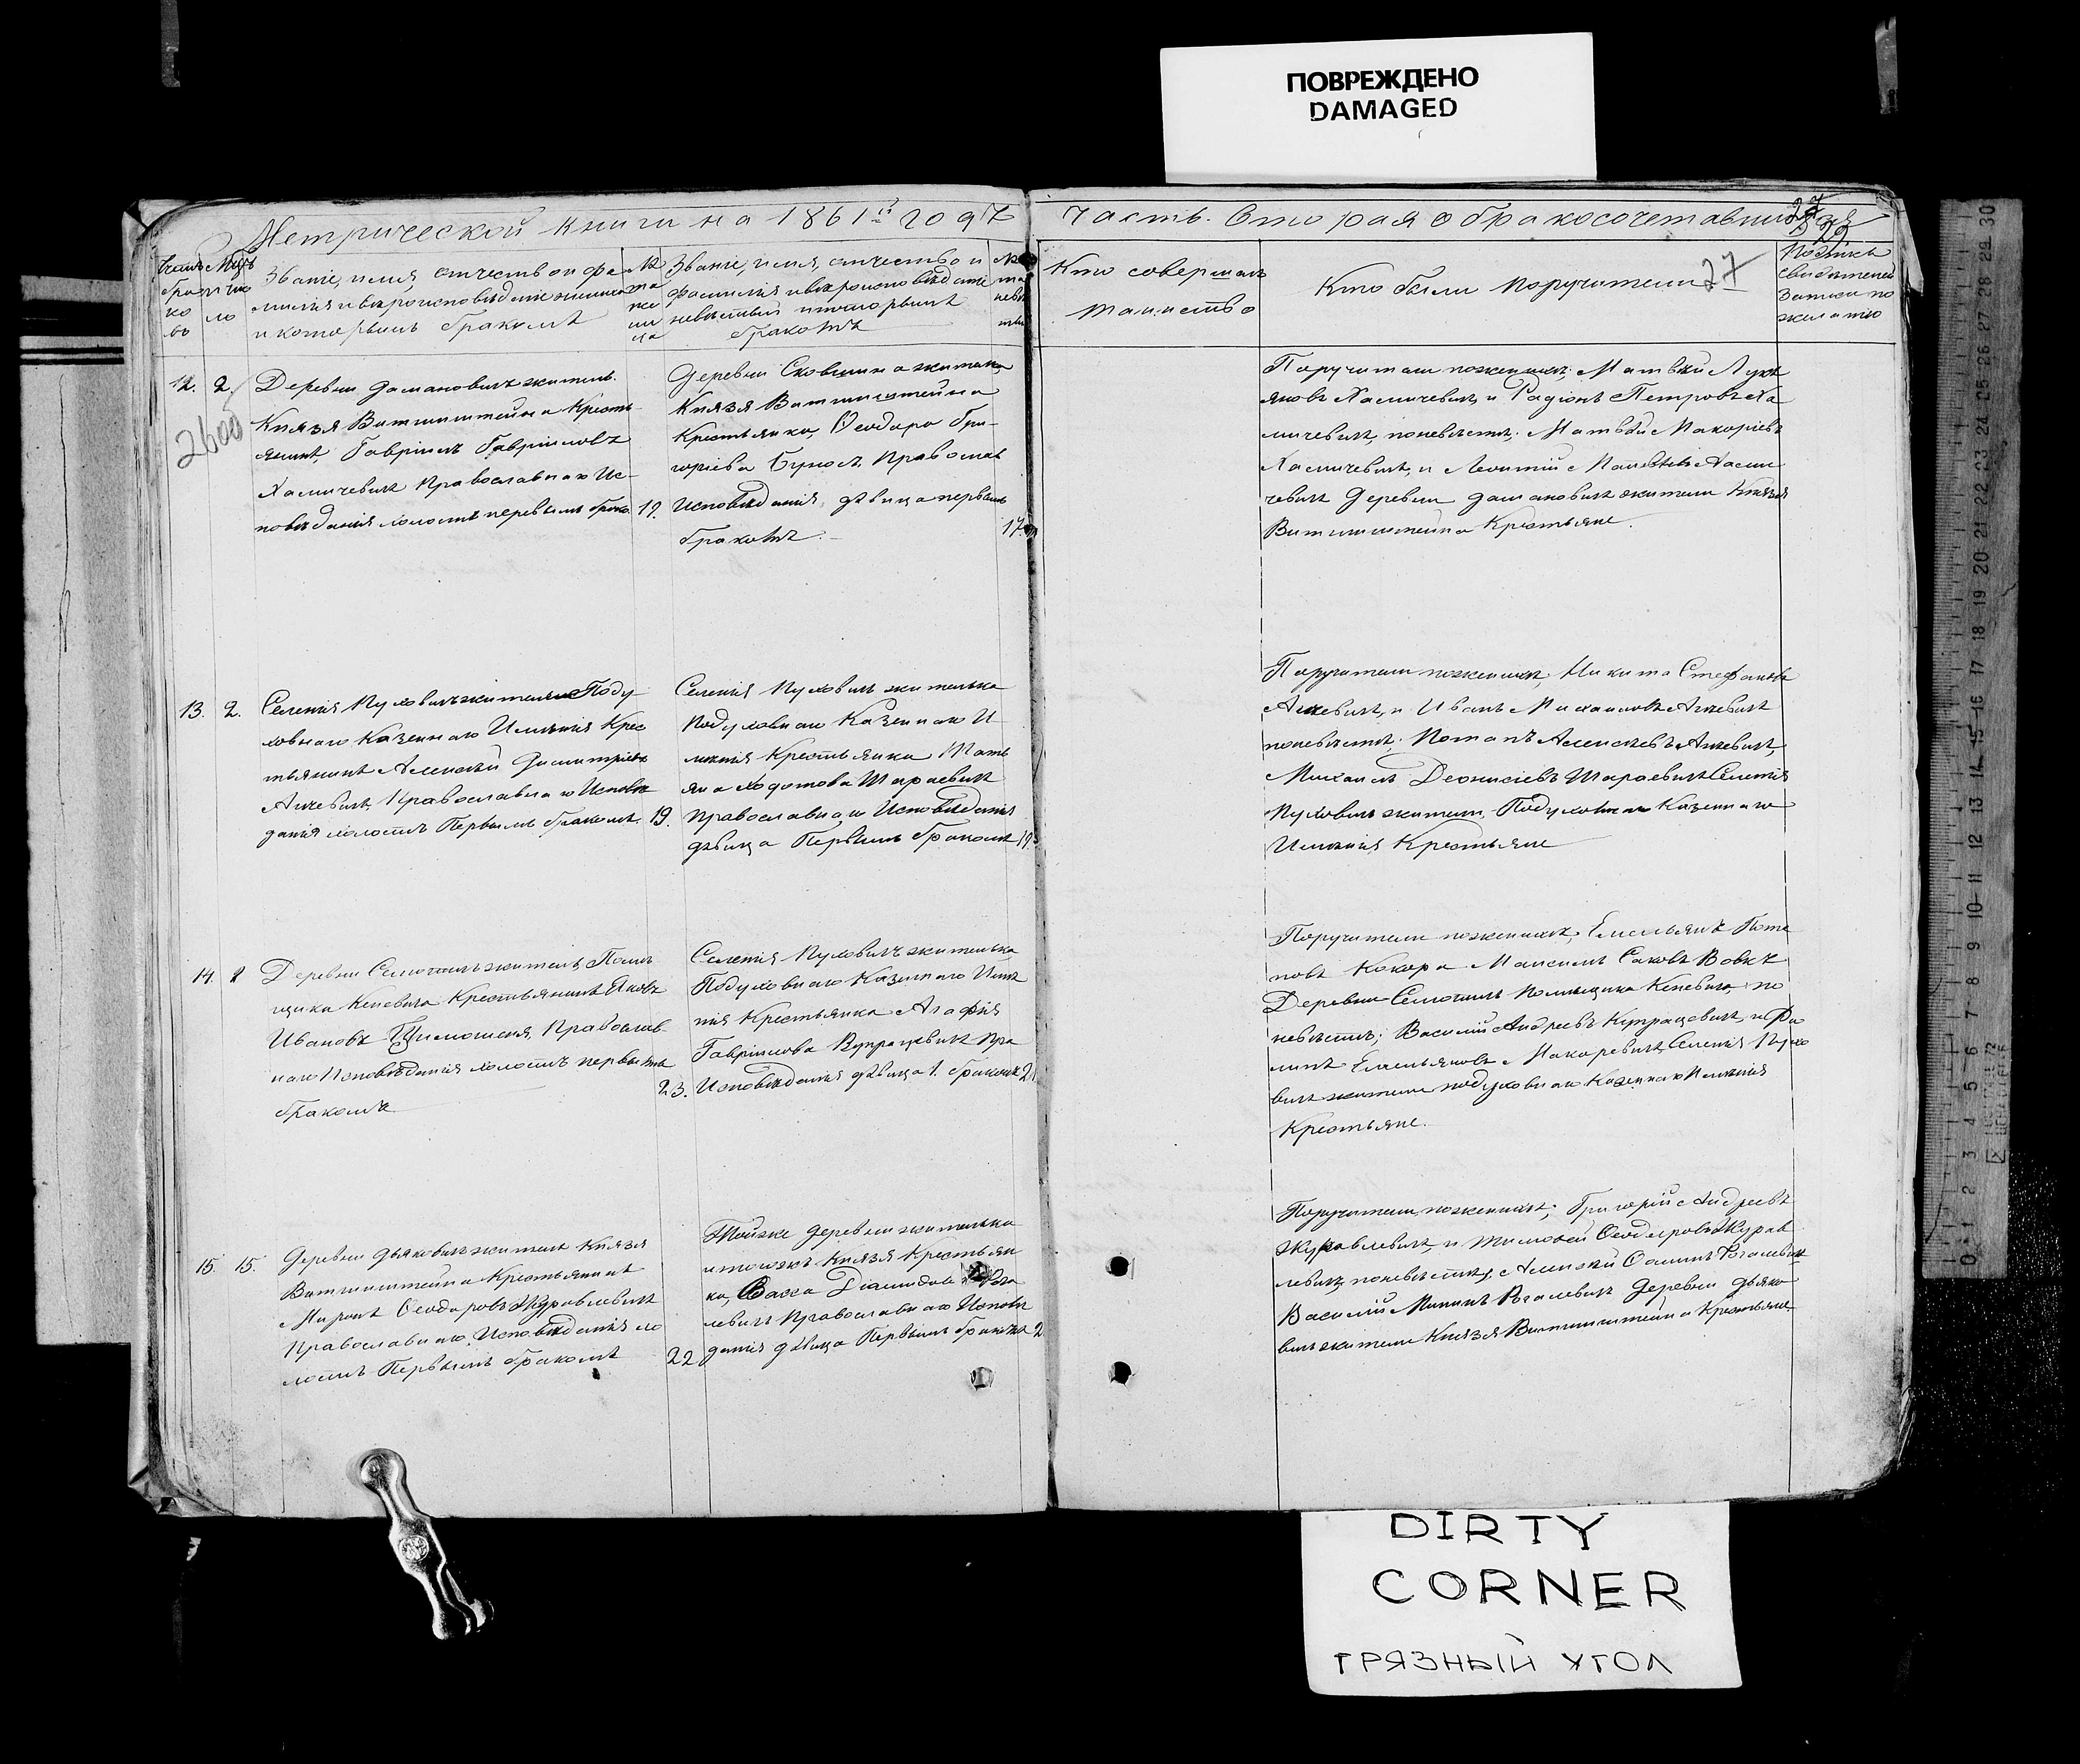 ПОВРЕЖДЕНО
DAMAGED
Метрической книги на 1861й годъ
Часть вторая о бракосочетавшихся
27
Званіе, имя, отчество и фа
милія и вѣроисповѣданіе жениха
и которымъ бракомъ
Званіе, имя, отчество и
фамилія и вѣроисповѣданіе
невѣсты и которымъ
бракомъ
Кто совершалъ
таинство
Кто были поручители 27
12. 2.
2600
Деревни Домановичъ житель
Князя Витгинштейна Кресть
янинъ, Гавріилъ Гавріиловъ
Халичевичъ Православнаго Ис-
повѣданія холостъ первымъ брако. 19.
Деревни Сковшина жителька
Князя Витгинштейна
Крестьянка, Ѳеодора Гри-
горіева Православ
Исповѣданія, дѣвица первымъ
бракомъ.
17.
Поручители по женихѣ; Матвѣй Лукь
яновъ Халичевичъ, и Радіонъ Петровъ Ха
личевичъ, по невѣстѣ; Матвѣй Макаріевъ
Халичевичъ, и Леонтій Халим
чевичъ Деревни Домановичъ жители Князя
Витгинштейна Крестьяне.
13. 2.
Селенія Пуховичъ житель Поду
ховнаго Казеннаго Имѣнія Крес
тьянинъ Алексѣй Димитріевъ
Анкевичъ, Православнаго Исповѣ
данія холостъ Первымъ бракомъ. 19.
Селенія Пуховичъ жителька
Подуховнаго Казеннаго И
мѣнія Крестьянка Тать
яна Ходотова Шараевичъ
Православнаго Исповѣданія
дѣвица Первымъ бракомъ 19.
Поручители по женихѣ, Никита Стефановъ
Анкевичъ, и Иванъ Михаиловъ Анкевичъ
по невѣстѣ; Потапъ Алексѣевъ Анкевичъ,
Михаилъ Деонисіевъ Шараевичъ Селенія
Пуховичъ жители, Подуховнаго Казеннаго
Имѣнія Крестьяне
14. 2
Деревни житель Помѣ
щика Кеневича Крестьянинъ Яковъ
Ивановъ Православ
наго Исповѣданія холостъ первымъ
бракомъ
23.
Селенія Пуховичъ жителька
Подуховнаго Казеннаго Имѣ
нія Крестьянка Агафія
Гавріилова Купрацевичъ Пра
Исповѣданія дѣвица 1. бракомъ 21
Поручители по женихѣ; Емельянъ Пота
повъ Кокора Максимъ Саковъ Вовкъ
Деревни Помѣщика Кеневича, по
невѣстѣ; Василій Андреевъ Купрацевичъ, и Фи
липъ Емельяновъ Макаревичъ, Селенія Пухо
вичъ жители подуховнаго Казеннаго Имѣнія
Крестьяне.
15. 15.
Деревни Дьяковичъ житель Князя
Витгинштейна Крестьянинъ
Миронъ Ѳеодоровъ Журавлевичъ
Православнаго Исповѣданія хо
лостъ Первымъ бракомъ
22
Тойже деревни жителька
и тогожъ Князя Крестьян
ка, Васса Діамидова Рога
левичъ Православнаго Исповѣ
данія дѣвица Первымъ бракомъ 2
Поручители по женихѣ; Григорій Андреевъ
Журавлевичъ, и Тимофей Ѳеодоровъ Журав
левичъ, по невѣстѣ; Алексѣй Осиповъ Рогалевичъ
Василій Мининъ Рогалевичъ Деревни Дьяко
вичъ жители Князя Витгинштейна Крестьяне
DIRTY
CORNER
ГРЯЗНЫЙ УГОЛ